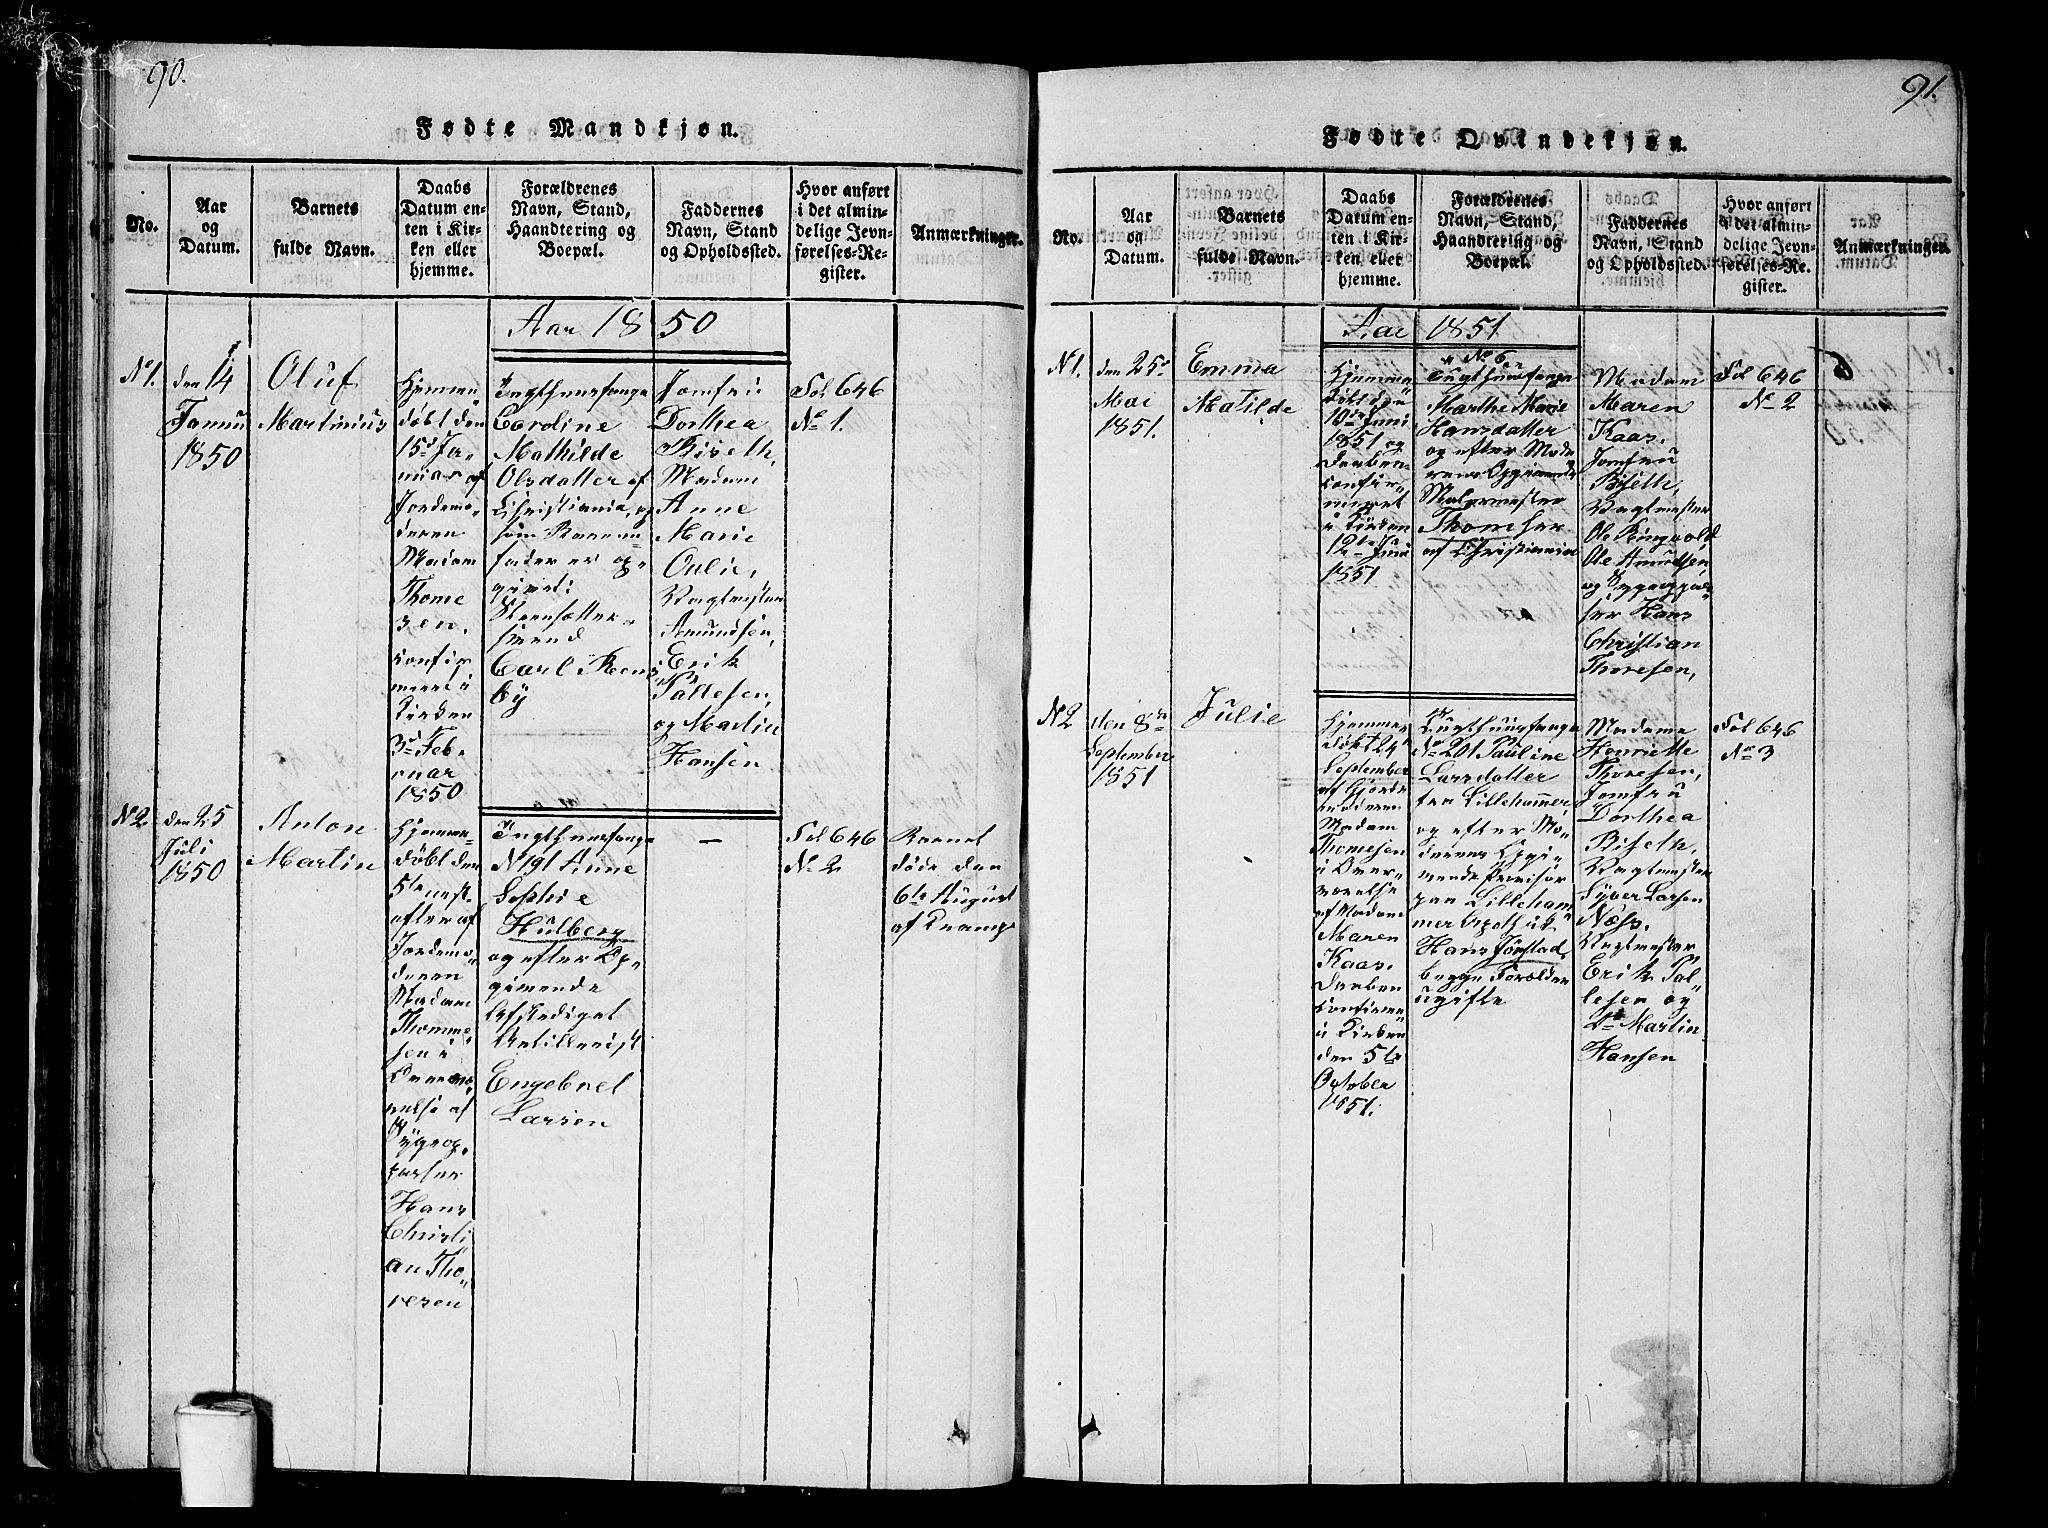 90.
Fødte Mandkjøn.
No.
Aar
og
Datum.
Barnets
fulde Navn.
Daabs
Datum en-
ten i Kir-
ken eller
hjemme.
Forældrenes
Navn, Stand,
Haandtering og
Boepæl.
Faddernes
Navn, Stand
og Opholdssted.
Hvor anført
i det almin-
delige Jevn-
førelses-Re-
gister.
Anmærkninger.
Aar 1850
No 1.
den 14
Janu
1850
Oluf
Martinius
Hjemme
døbt den
15d Ja-
nuar af
Jordemo-
deren
Madam
Thome
sen,
confir
meret i
Kirken
3d Feb-
ruar
1850
Tugthuusfange
Caroline
Mathilde
Olsdatter af
Christiania, og
som Barne-
fader er op-
givet:
Steenhetter-
svend
Carl Reens
by
Jomfru
Dorthea
Biseth,
Madam
Anne
Marie
Oulie,
Vagtmester
Amundsen,
Erik
Pallesen,
og Martin
Hansen
Fol 646
No 1.
No 2
den 25
Juli
1850
Anton
Martin
Hjemme-
døbt den
5te næst-
efter af
Jordemo-
deren
Madam
Thomme-
sen i
Overvæ-
relse af
Sygeop-
passer
Hans
Christi
an Tho-
resen
Tugthuusfange
No 191 Anne
Sophie
Hulberg
og efter Op-
givende
Afskediget
Artillerist
Engebret
Larsen
—
Fol 646
No 2
Barnet
døde den
6te August
af Krampe
91.
Fødte Qvindekjøn.
No.
Aar
og
Datum.
Barnets
fulde Navn.
Daabs
Datum en-
ten i Kir-
ken eller
hjemme.
Forældrenes
Navn, Stand,
Haandtering og
Boepæl.
Faddernes
Navn, Stand
og Opholdssted.
Hvor anført
i det almin-
delige Jevn-
førelses-Re-
gister.
Anmærkninger.
Aar 1851
No 1.
den 25d
Mai
1851.
Emma
Matilde
Hjemme
døbt den
10de Juni
1851 og
Daaben
confir-
meret
i Kirken
12te Juni
1851
No 6
Tugthuusfange
Marthe Marie
Hansdatter
og efter Mode
rens Opgivende
Malermester
Thomsen
af Christiania
Madam
Maren
Kaas.
Jomfru
Biseth,
Vagtmester
Ole Ringvold
Ole Amundsen,
og Sygeoppas-
ser Hans
Christian
Thoresen,
Fol 646
No 2
No 2
den 8de
September
1851
Julie
Hjemme-
døbt 24de
September
af Gjorde
moderen
Madam
Thomesen
i Over-
værelse
af Madam
Maren
Kaas.
Daaben
confirme
i Kirken
den 5te
October
1851.
Tugthuusfange
No 201 Pauline
Larsdatter
fra Lillehammer
og efter Mo-
derens Opgi-
vende Provisor
paa Lilleham-
mer Apothek
Hans Jørstad
begge Forældre
ugifte
Madame
Henriette
Thoresen,
Jomfru
Dorthea
Biseth,
Vagtmester
Syver Larsen
Næss.
Vagtmester
Erik Pal-
lesen og
Do Martin
Hansen
Fol 646
No 3